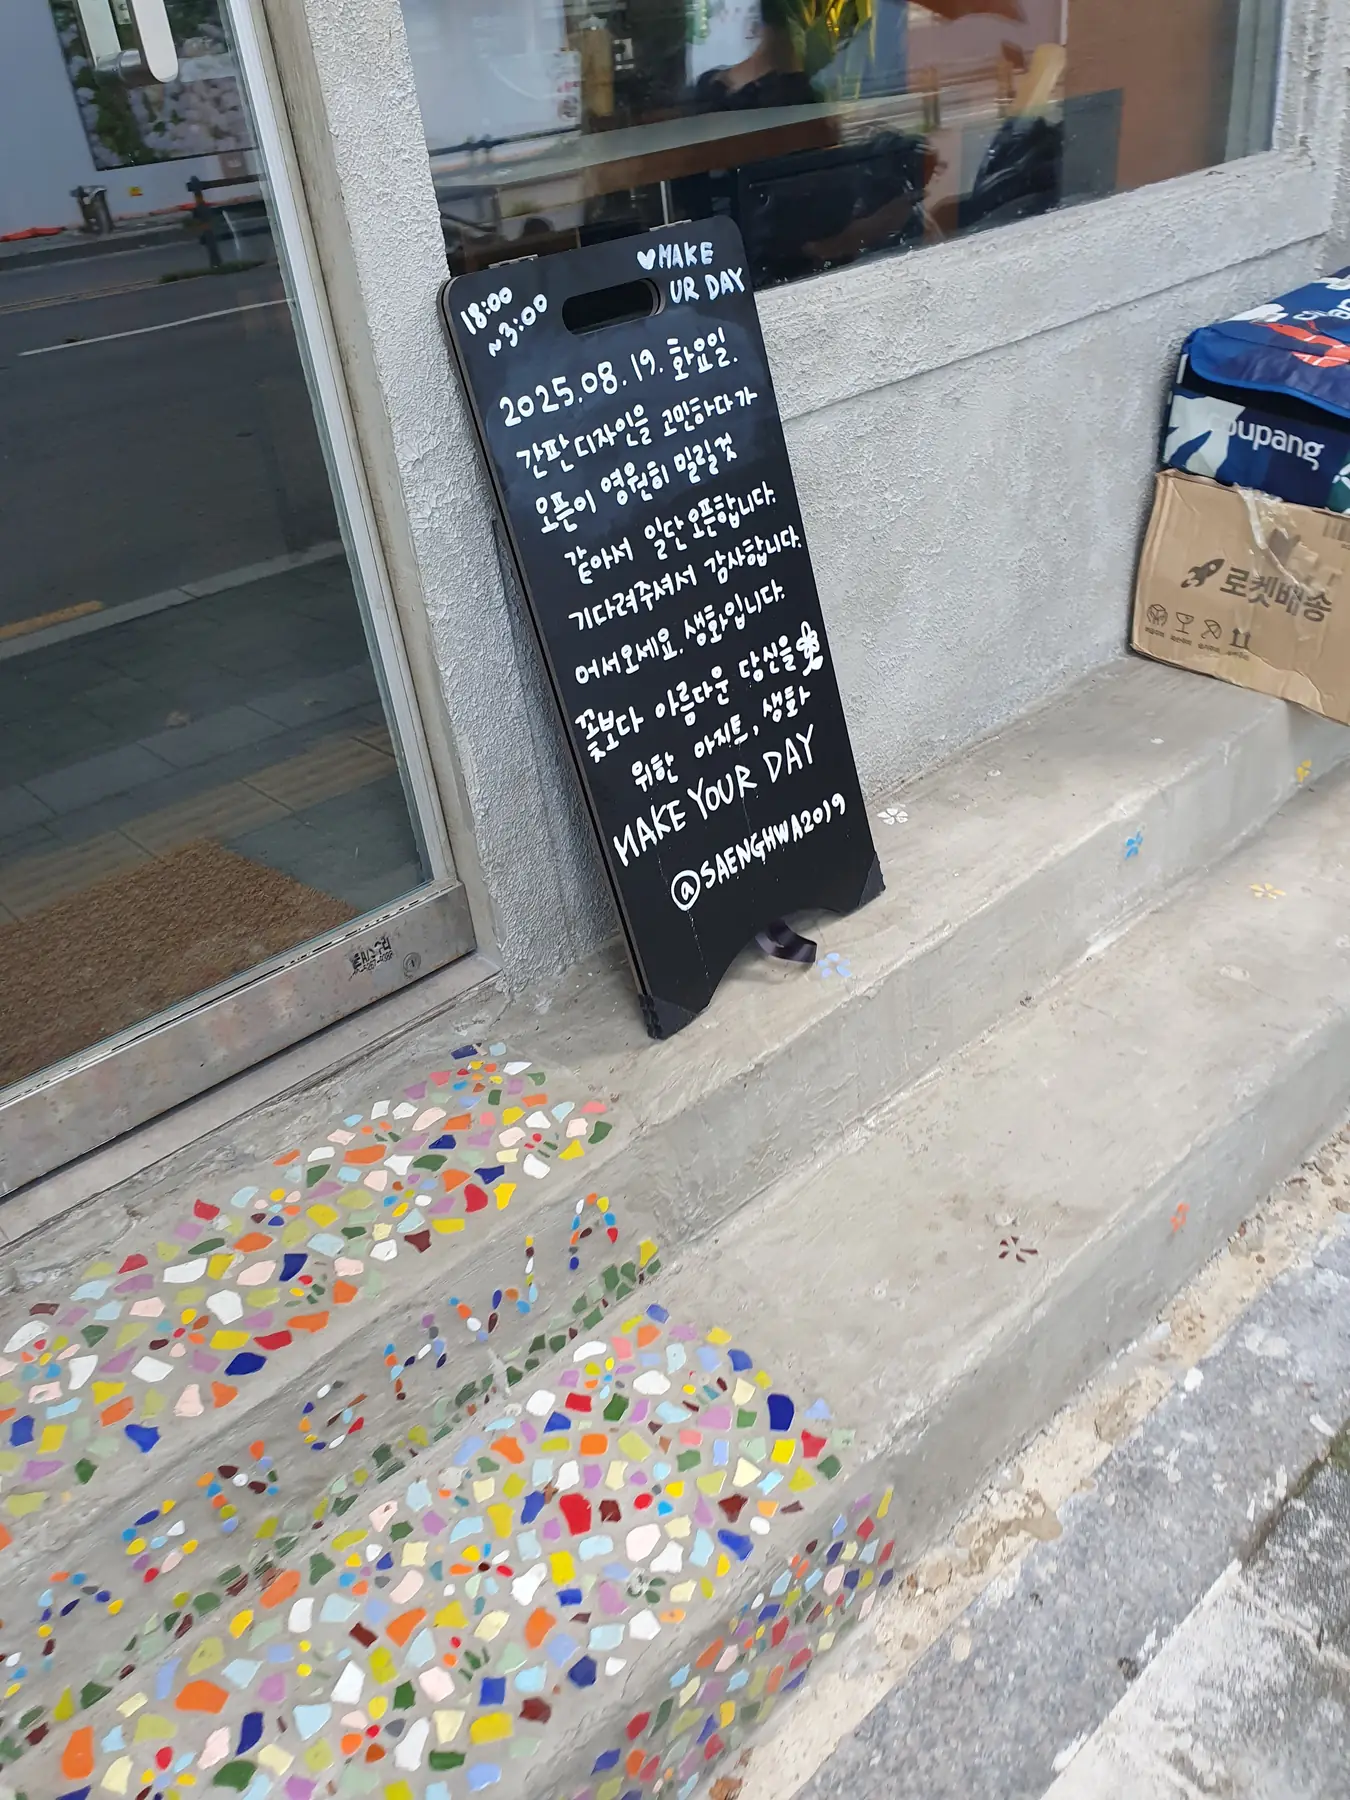 18:00
~3:00
♥MAKE
UR DAY
2025.08.19. 화요일.
간판디자인을 고민하다가
오픈이 영원히 밀릴것
같아서 일단오픈합니다.
기다려주셔서 감사합니다.
어서오세요. 생화입니다.
꽃보다 아름다운 당신을
위한 아지트, 생화
MAKE YOUR DAY
@SAENGHWA2019
coupang
로켓배송
SAENGHWA